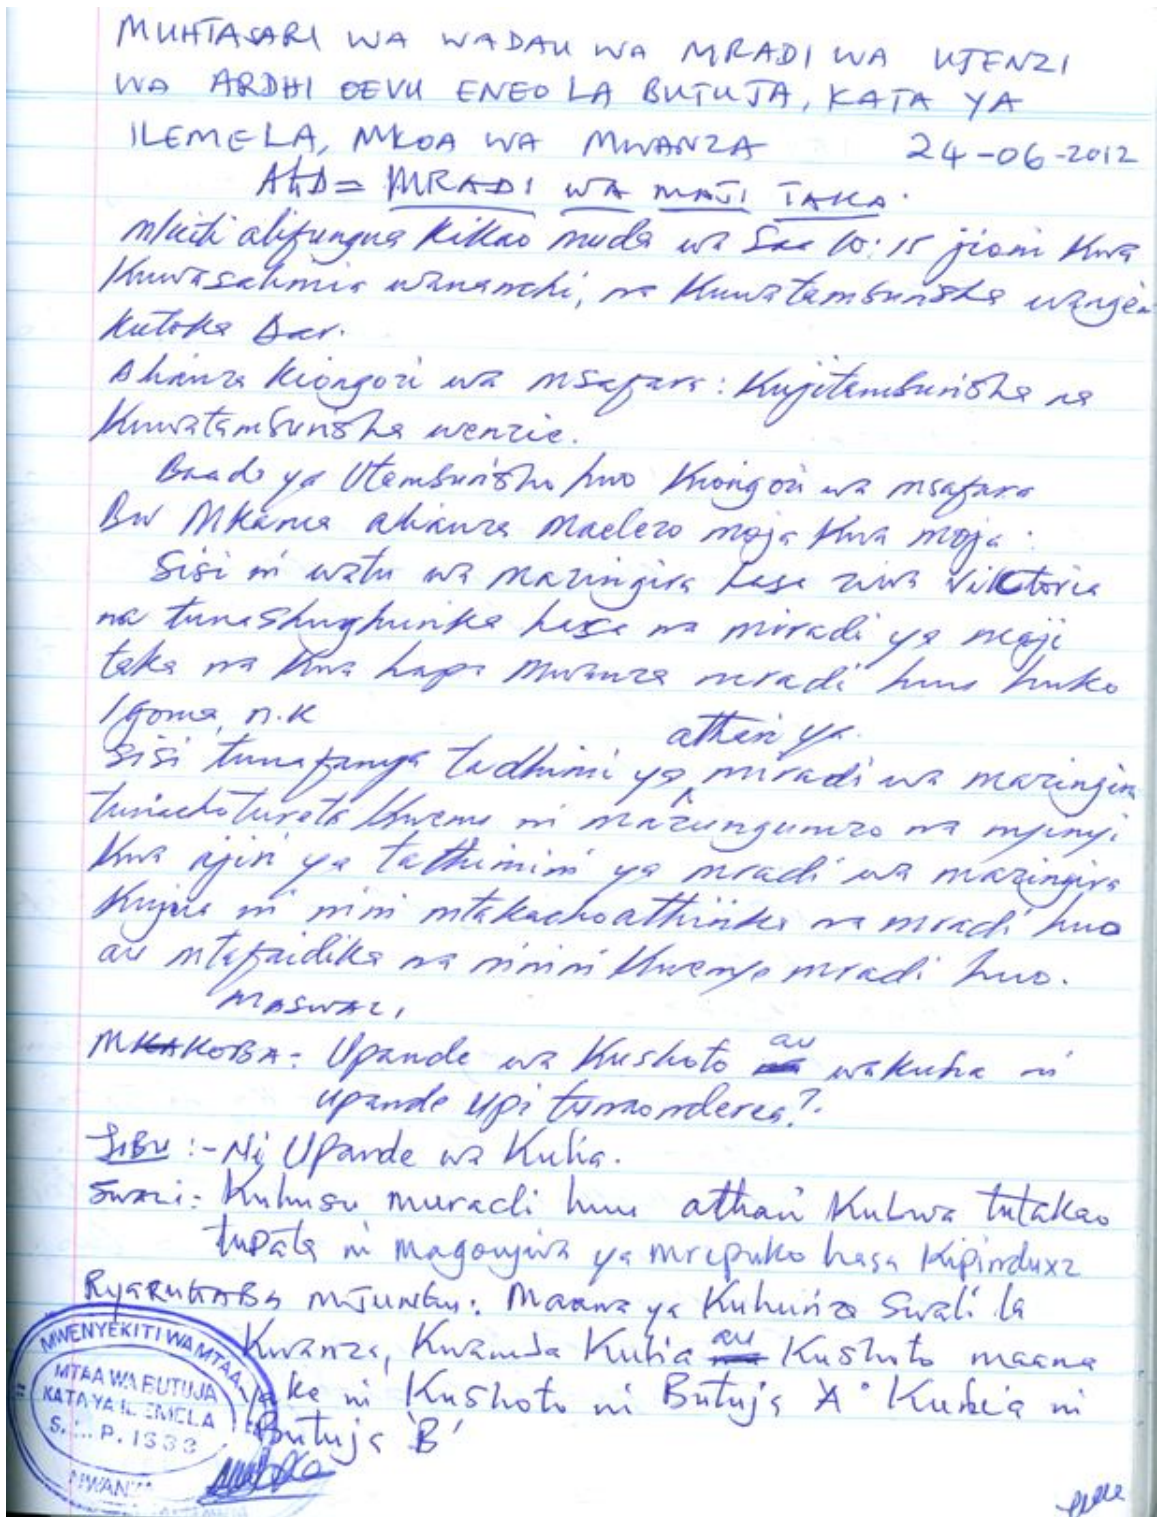 MUHTASARI WA WADAU WA MRADI WA UJENZI
WA ARDHI OEVU ENEO LA BUTUJA, KATA YA
ILEMELA, MKOA WA MWANZA 24-06-2012
MRADI WA MAJI TAKA.
alifungua kikao muda wa Saa 10:15 jioni kwa
kuwasalimia wananchi, na kuwatambunisha wangeni
kutoka Dar.
Alianza kiongozi wa msafara: kujitambunisha na
kuwatambunisha wenzie.
Baada ya Utambunisho huo kiongozi wa msafara
Bw Mkama alianza maelezo moja kwa moja:
Sisi ni watu wa mazingira hasa ziwa Viktoria
na tunashughulika hasa na miradi ya maji
taka na kwa hapa Mwanza mradi huu huko
Igoma, n.k
athari ya
Sisi tunafanya tadhimi ya mradi wa mazingira
kwenu ni mazungumzo na nyinyi
kwa ajiri ya tathimini ya mradi wa mazingira
kujua ni nini mtakachoathirika na mradi huo
au mtafaidika na ninini kwenye mradi huo.
MASWALI
MKAKOBA: Upande wa kushoto au wakulia ni
upande upi
JIBU :- Ni Upande wa Kulia.
Swali: Kuhusu muradi huu athari kubwa tutakao
tupata ni magonjwa ya mrepuko hasa kipinduxz
MJUMBE: Maana ya kuhuriza Swali la
kwanza, kulia au kushoto maana
yake ni kushoto ni Butuja A' kulia ni
Butuja 'B'
MWENYEKITI WA MTAA
MTAA WA BUTUJA
KATA YA ILEMELA
S.L.P. 1333
MWANZA